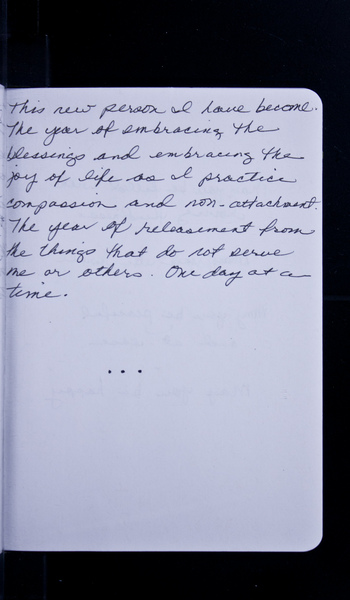 This new person I have become.
The year of embracing the
blessings and embracing the
joy of life as I practice
compassion and non-attachment.
The year of releasement from
the things that do not serve
me or others. One day at a
time.
...